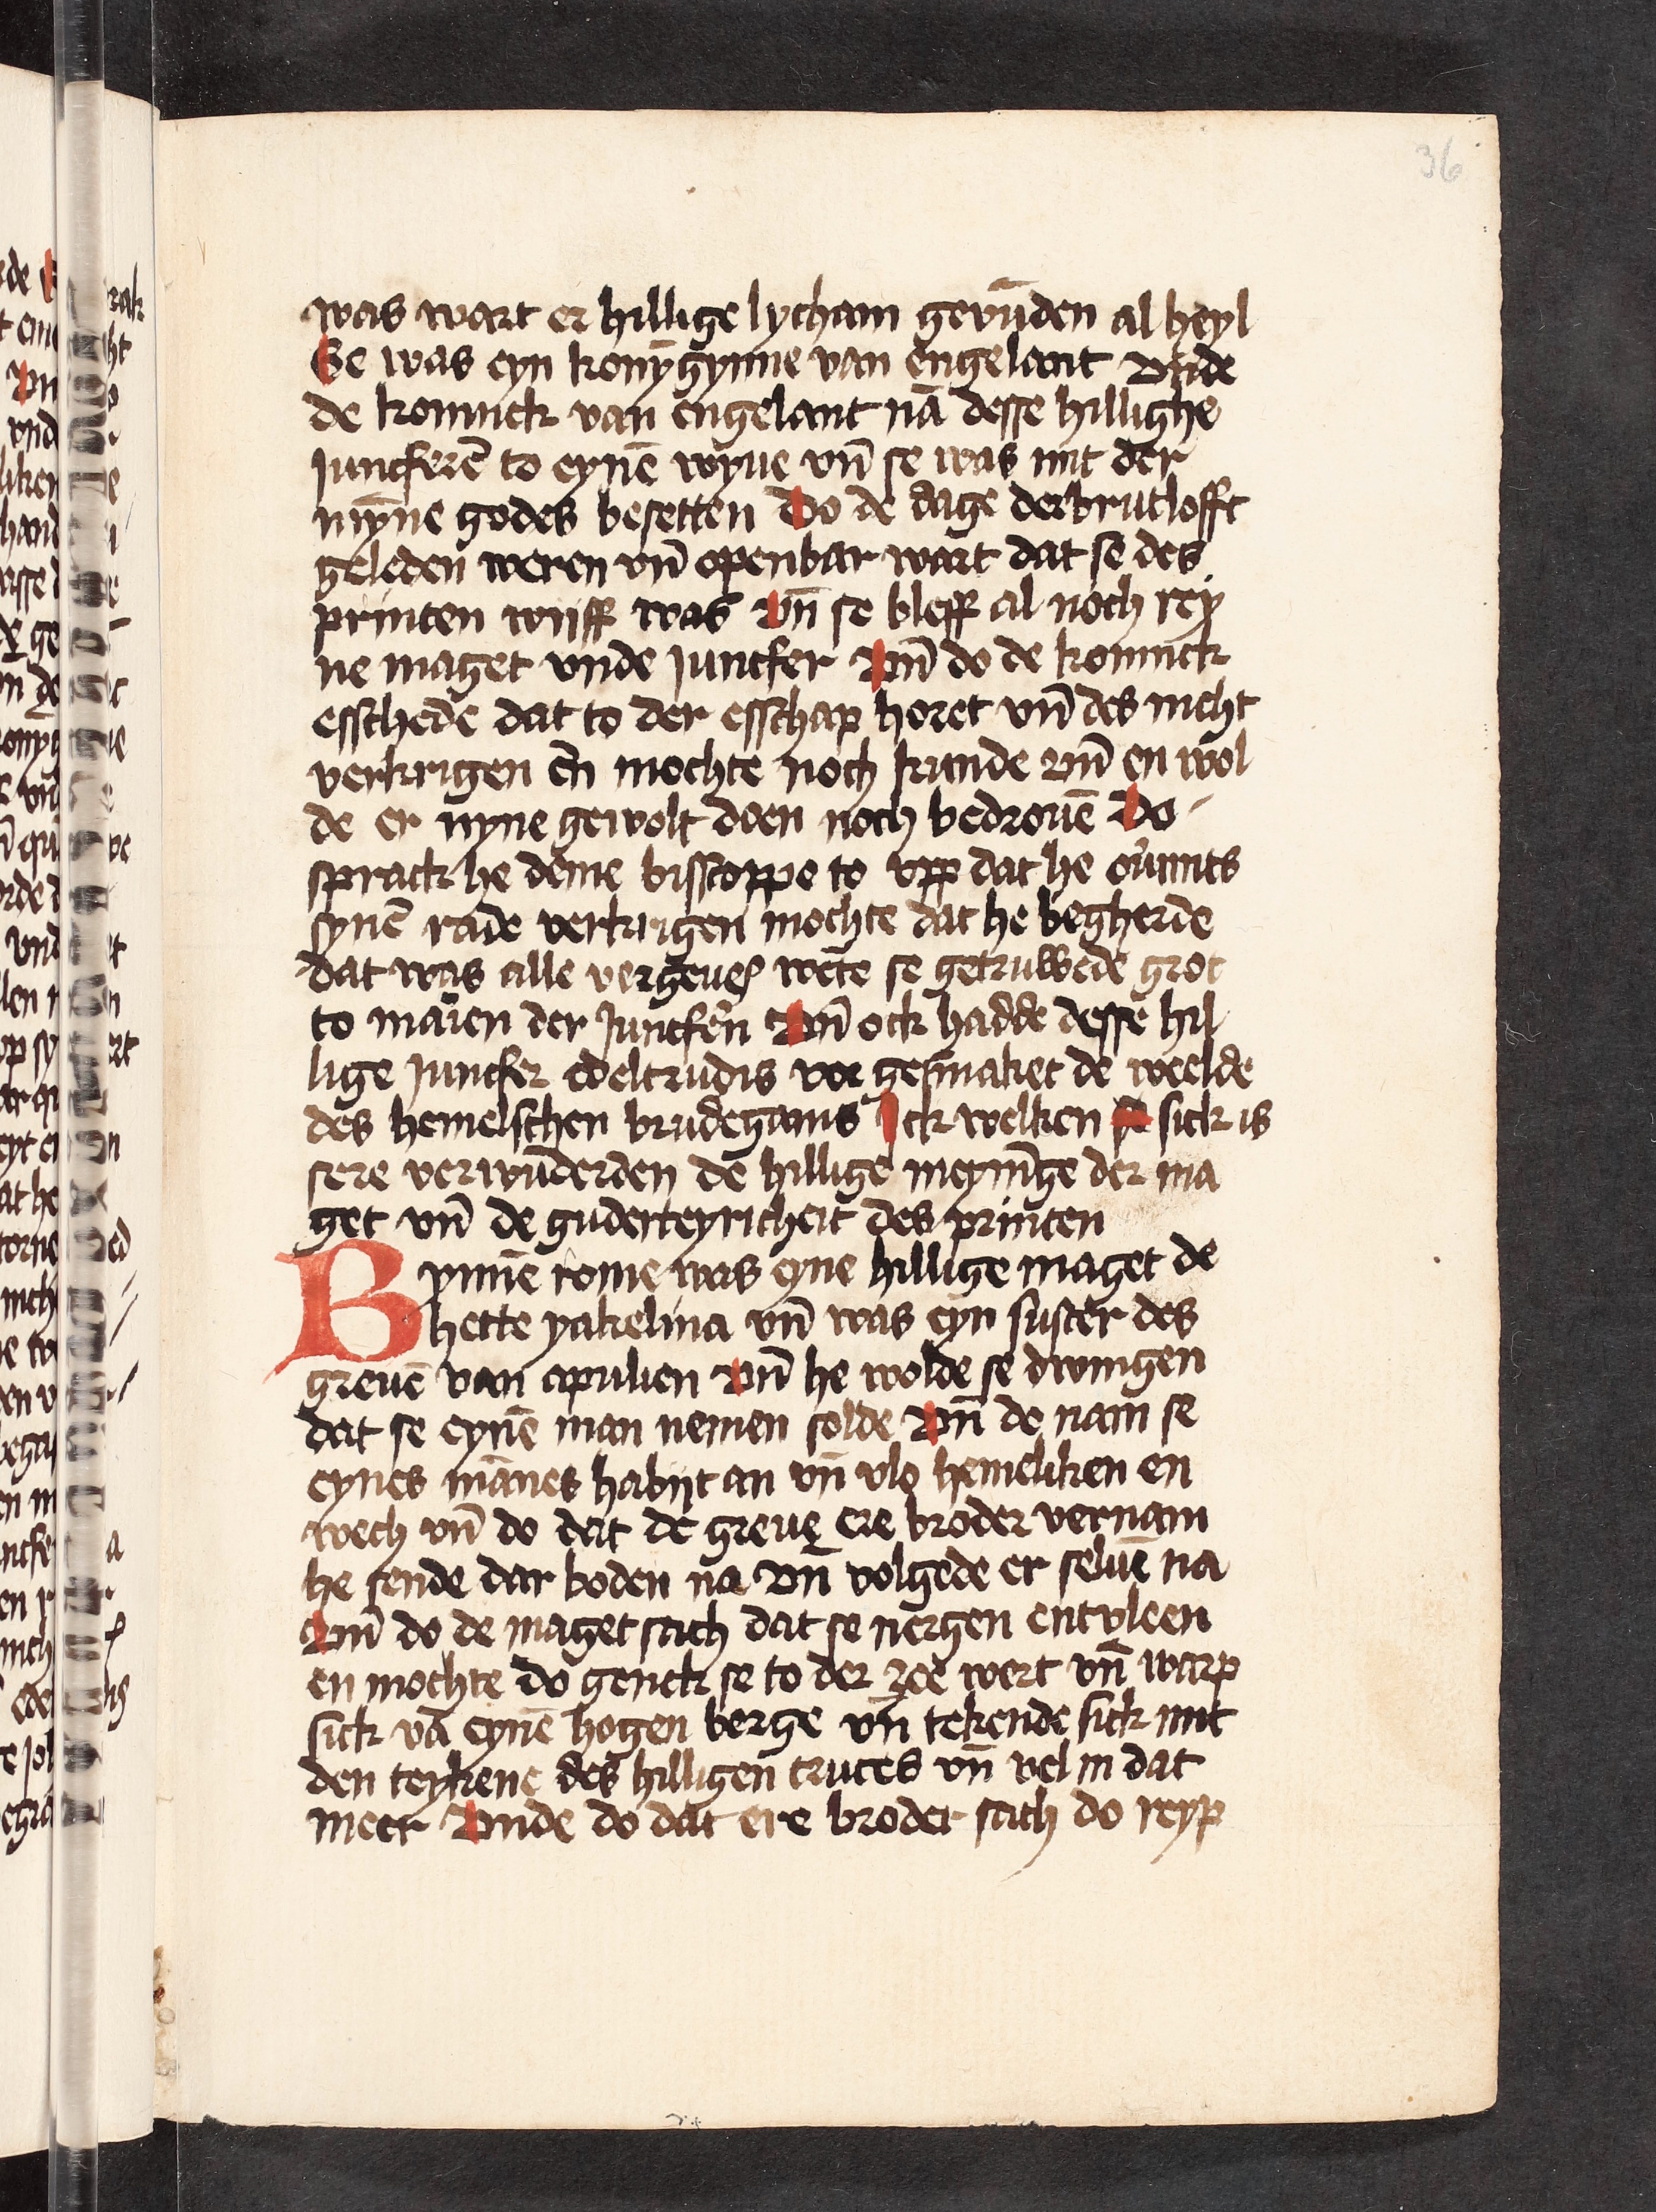 36
was wart er hillige lycham gevūden al heyl
Se was eyn konȳgynne van engelant Vnde
de konninck van engelant nā desse hillighe
juncferē to eynē wyue vn̄ se was mit der
mȳne godes besetten Do de dage der brutlofft
geleden weren vn̄ openbar wart dat se des
princen wijff was Vn̄ se bleff al noch rey
ne maget vnde juncfer Vn̄ do de konnick
esschede dat to der esschap horet vn̄ des nicht
verkrigen en mochte noch kunde Vn̄ en wol
de er nyne gewolt doen noch bedrouē Do
sprack he deme bisscoppe to vpp dat he ouͥmits
synē rade verkrigen mochte dat he begherde
dat was alle vergeues wēte se getruwede grot
to maken der juncfern Vn̄ ock hadde desse hil
lige juncfer edeltrudis vor gesmaket de weelde
des hemelschen brudegams Ick welken sick is
sere verwūderden de hillige meynīge der ma
get vn̄ de guderteyricheit des princen
Bynnē rome was eyne hillige maget de
hette yakelina vn̄ was eyn suster des
greuē van apulien Vn̄ he wolde se dwingen
dat se eynē man nemen solde Vn̄ do nam se
eynes mānes habijt an vn̄ vlo hemeliken en
wech vn̄ do dat de greue ere broder vernam
he sende dar boden na Vn̄ volgede er seluē na
Vn̄ do de maget sach dat se nergen entvleen
en mochte do genck se to der zee wert vn̄ warp
sick vā eynē hogen berge vn̄ tekende sick mit
den teykene des hilligen cruces vn̄ vel in dat
meer Vnde do dat ere broder sach do reyp